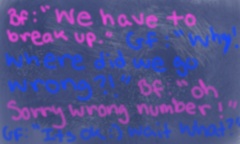 Bf: "We have to
break up." Gf: "Why!
Where did we go
wrong?!" Bf "oh
Sorry wrong number!"
Gf: "Its ok :) wait what?"